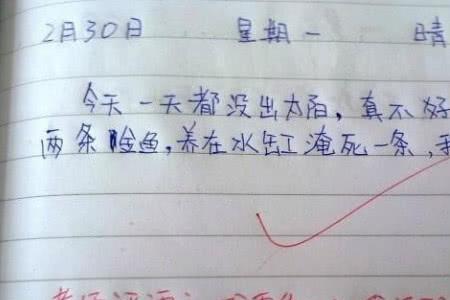 2月30日 星期一 晴
今天一天都没出太阳，真不好
两条金鱼，养在水缸淹死一条，
老师评语：